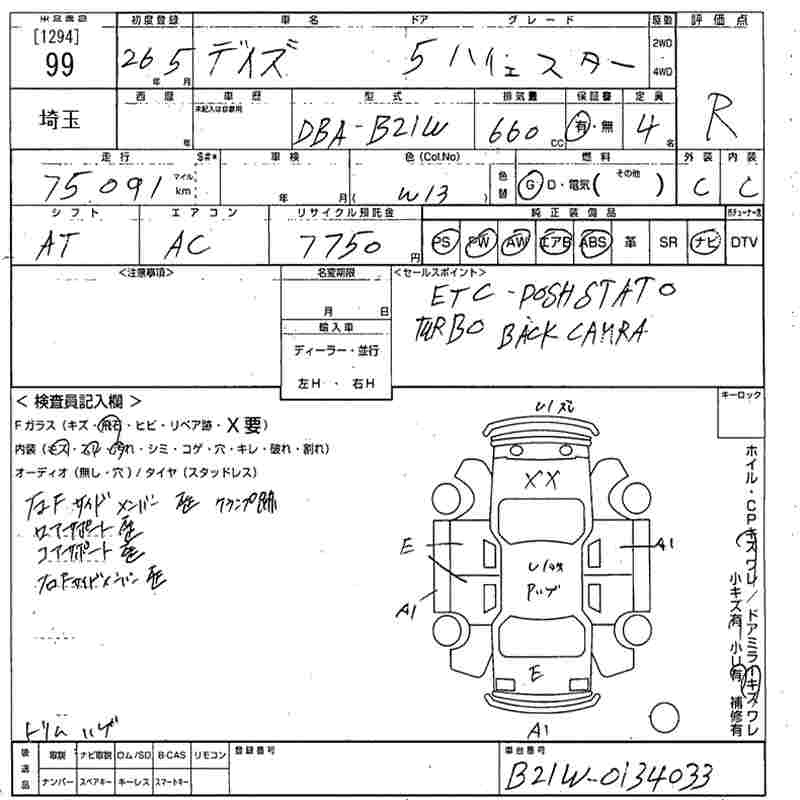 [1294]
99
初度登録 車名 ドア グレード 駆動 評価点
26年 5月 デイズ 5 ハイェスター 2WD・4WD
埼玉
西歴 車歴 型式 排気量 保証書 定員
未記入は自家用
年 DBA-B21W 660cc 有・無 4名 R
走行 S#* 車検 色(Col.No) 色替 燃料 外装 内装
75091 マイル km 年 月 ( W13 ) G D・電気( その他 ) C C
シフト エアコン リサイクル預託金 純正装備品
AT AC 7750円 PS PW AW エアB ABS 革 SR ナビ DTV
<注意事項> 名変期限 <セールスポイント>
月 日 ETC
輸入車 TURBO BACK CAMRA
ディーラー・並行
左H ・ 右H
キーロック
< 検査員記入欄 >
Fガラス(キズ・飛石・ヒビ・リペア跡・X要)
内装(キズ・スレ・汚れ・シミ・コゲ・穴・キレ・破れ・割れ)
オーディオ(無し・穴)/タイヤ(スタッドレス)
サイドメンバー クランプ跡
コアサポート
サイドメンバー
XX
E A1
A1
E
A1
ホイル・CPキズワレ/ドアミラーキズワレ
小キズ有 小凹有 補修有
トリム ハゲ
後送品 取説 ナビ取説 ロム/SD B-CAS リモコン 登録番号 車台番号
ナンバー スペアキー キーレス スマートキー B21W-0134033